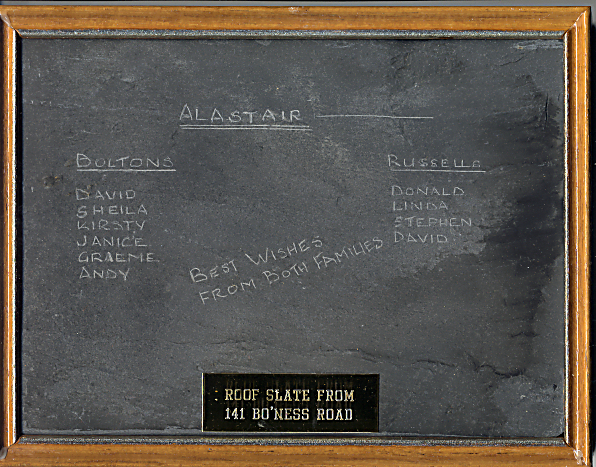 ALASTAIR
BOLTONS
DAVID
SHEILA
KIRSTY
JANICE
GRAEME
ANDY
RUSSELLS
DONALD
LINDA
STEPHEN
DAVID
BEST WISHES
FROM BOTH FAMILIES
ROOF SLATE FROM
141 BO'NESS ROAD